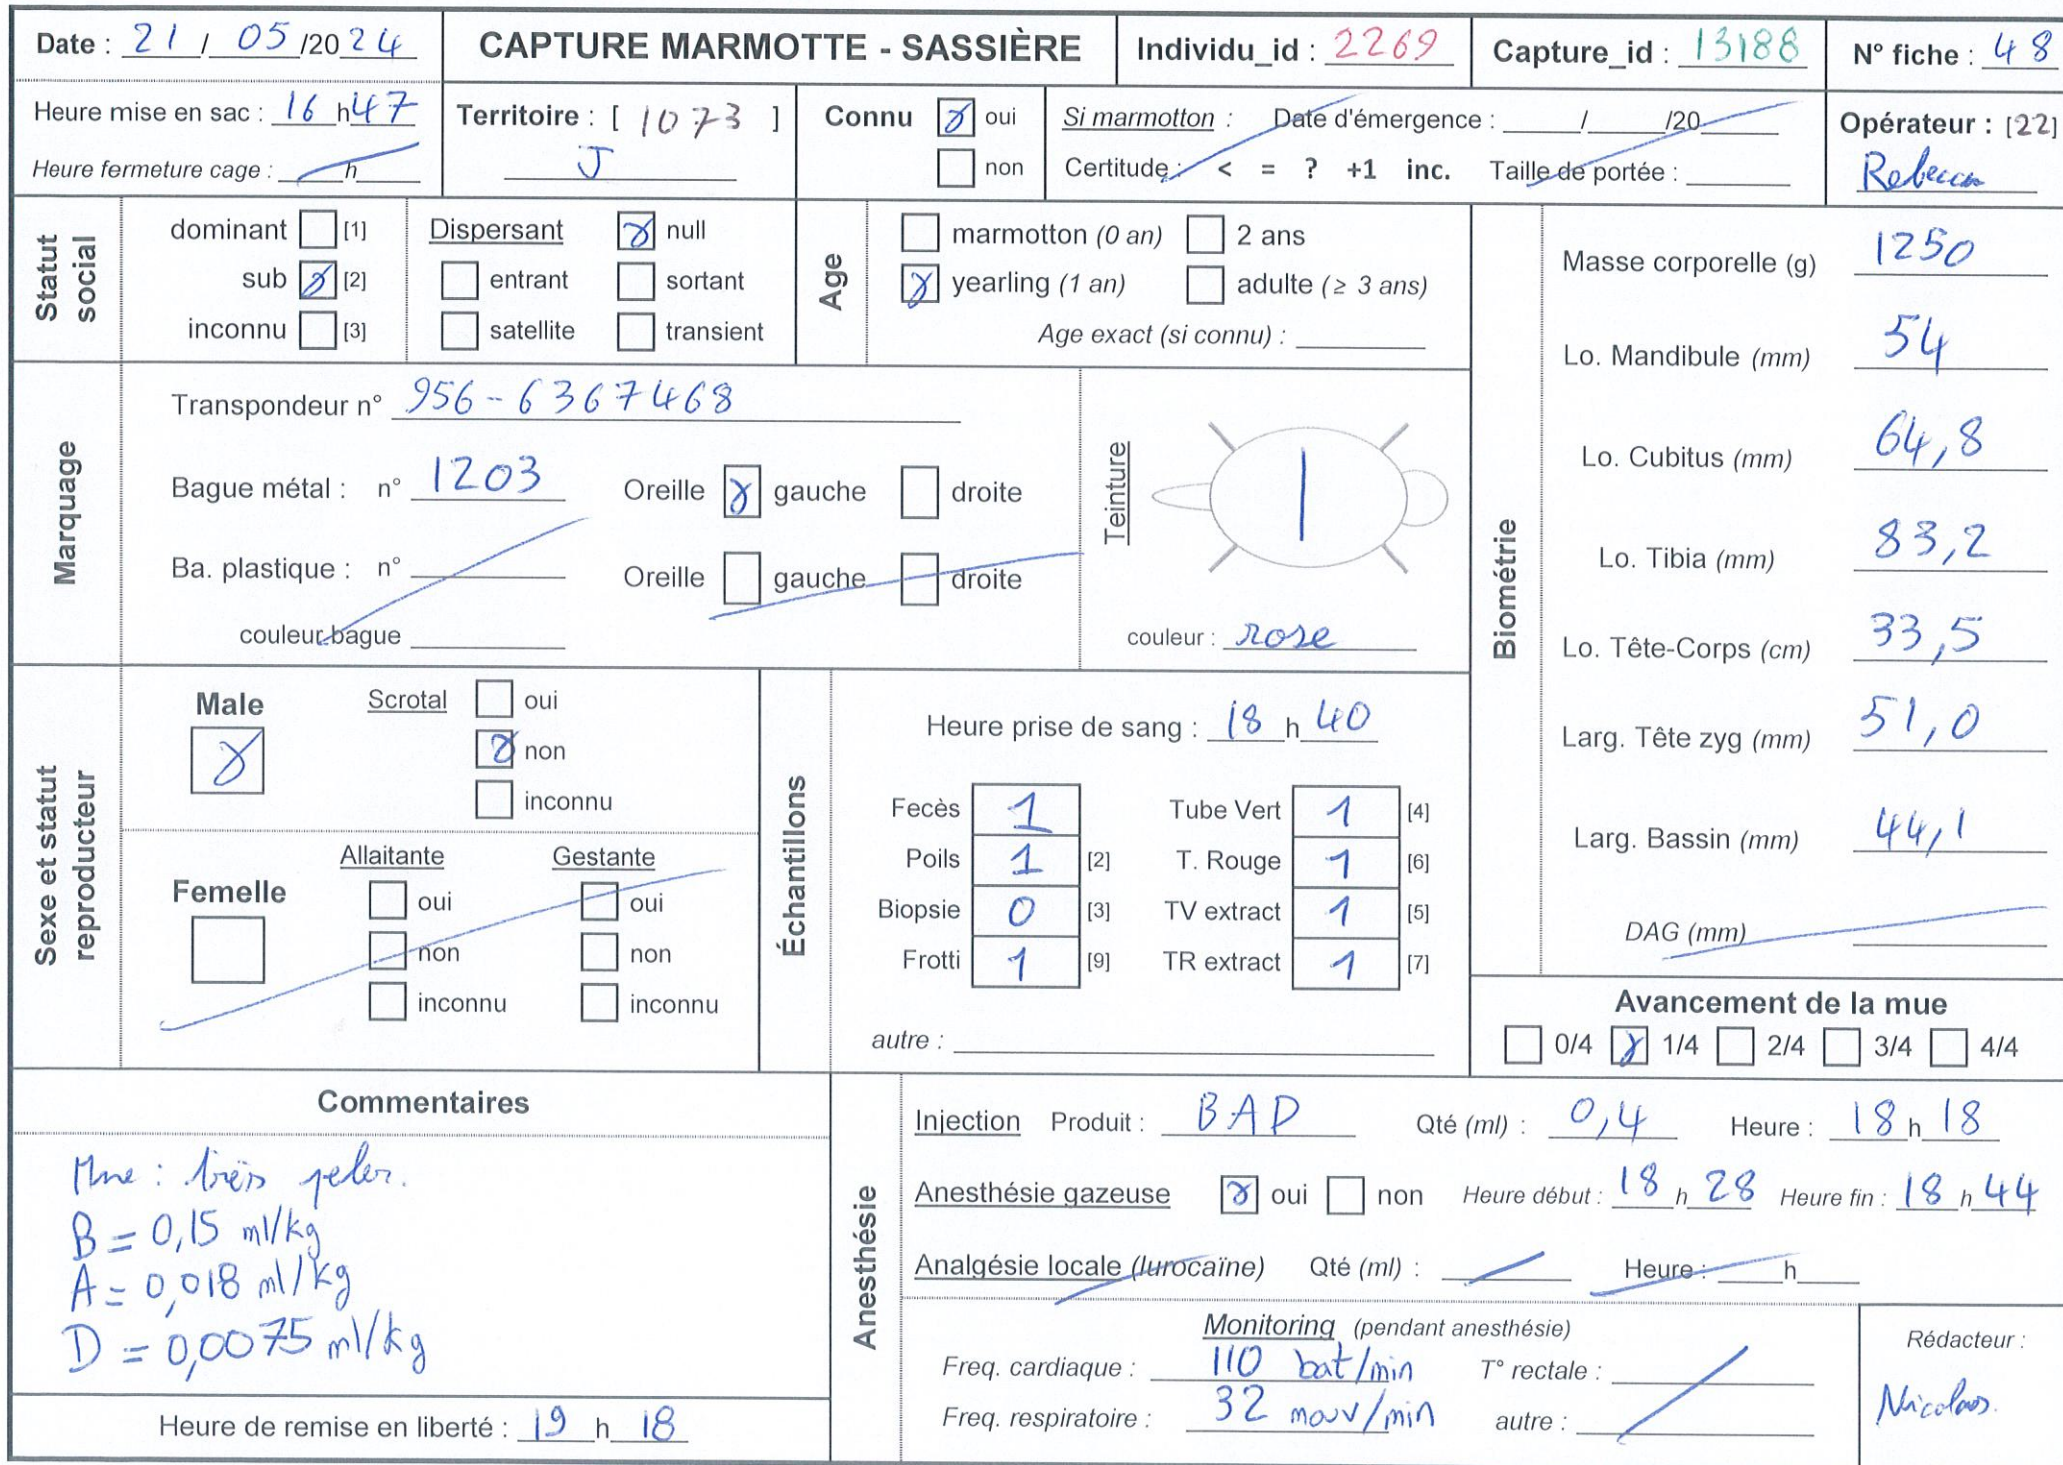 Date : 21 / 05 /2024
CAPTURE MARMOTTE - SASSIÈRE
Individu_id : 2269
Capture_id : 13188
N° fiche : 48
Heure mise en sac : 16 h47
Heure fermeture cage : ___h___
Territoire : [ 1073 ]
J
Connu
oui
non
Si marmotton : Date d'émergence : ___/___/20___
Certitude : < = ? +1 inc. Taille de portée :
Opérateur : [22]
Rebecca
Statut social
dominant [1]
sub [2]
inconnu [3]
Dispersant
null
entrant
sortant
satellite
transient
Age
marmotton (0 an)
2 ans
yearling (1 an)
adulte (≥ 3 ans)
Age exact (si connu) :
Marquage
Transpondeur n° 956-6367468
Bague métal : n° 1203
Oreille gauche droite
Ba. plastique : n°
Oreille gauche droite
couleur bague
Teinture
couleur : rose
Biométrie
Masse corporelle (g) 1250
Lo. Mandibule (mm) 54
Lo. Cubitus (mm) 64,8
Lo. Tibia (mm) 83,2
Lo. Tête-Corps (cm) 33,5
Larg. Tête zyg (mm) 51,0
Larg. Bassin (mm) 44,1
DAG (mm)
Sexe et statut reproducteur
Male
Scrotal
oui
non
inconnu
Femelle
Allaitante
oui
non
inconnu
Gestante
oui
non
inconnu
Échantillons
Heure prise de sang : 18 h 40
Fecès 1 Tube Vert 1 [4]
Poils 1 [2] T. Rouge 1 [6]
Biopsie 0 [3] TV extract 1 [5]
Frotti 1 [9] TR extract 1 [7]
autre :
Avancement de la mue
0/4 1/4 2/4 3/4 4/4
Commentaires
B = 0,15 ml/kg
A = 0,018 ml/kg
D = 0,0075 ml/kg
Heure de remise en liberté : 19 h 18
Anesthésie
Injection Produit : BAD Qté (ml) : 0,4 Heure : 18 h 18
Anesthésie gazeuse oui non Heure début : 18 h 28 Heure fin : 18 h 44
Analgésie locale (lurocaïne) Qté (ml) : Heure : ___h___
Monitoring (pendant anesthésie)
Freq. cardiaque : 110 bat/min T° rectale :
Freq. respiratoire : 32 mouv/min autre :
Rédacteur :
Nicolas.